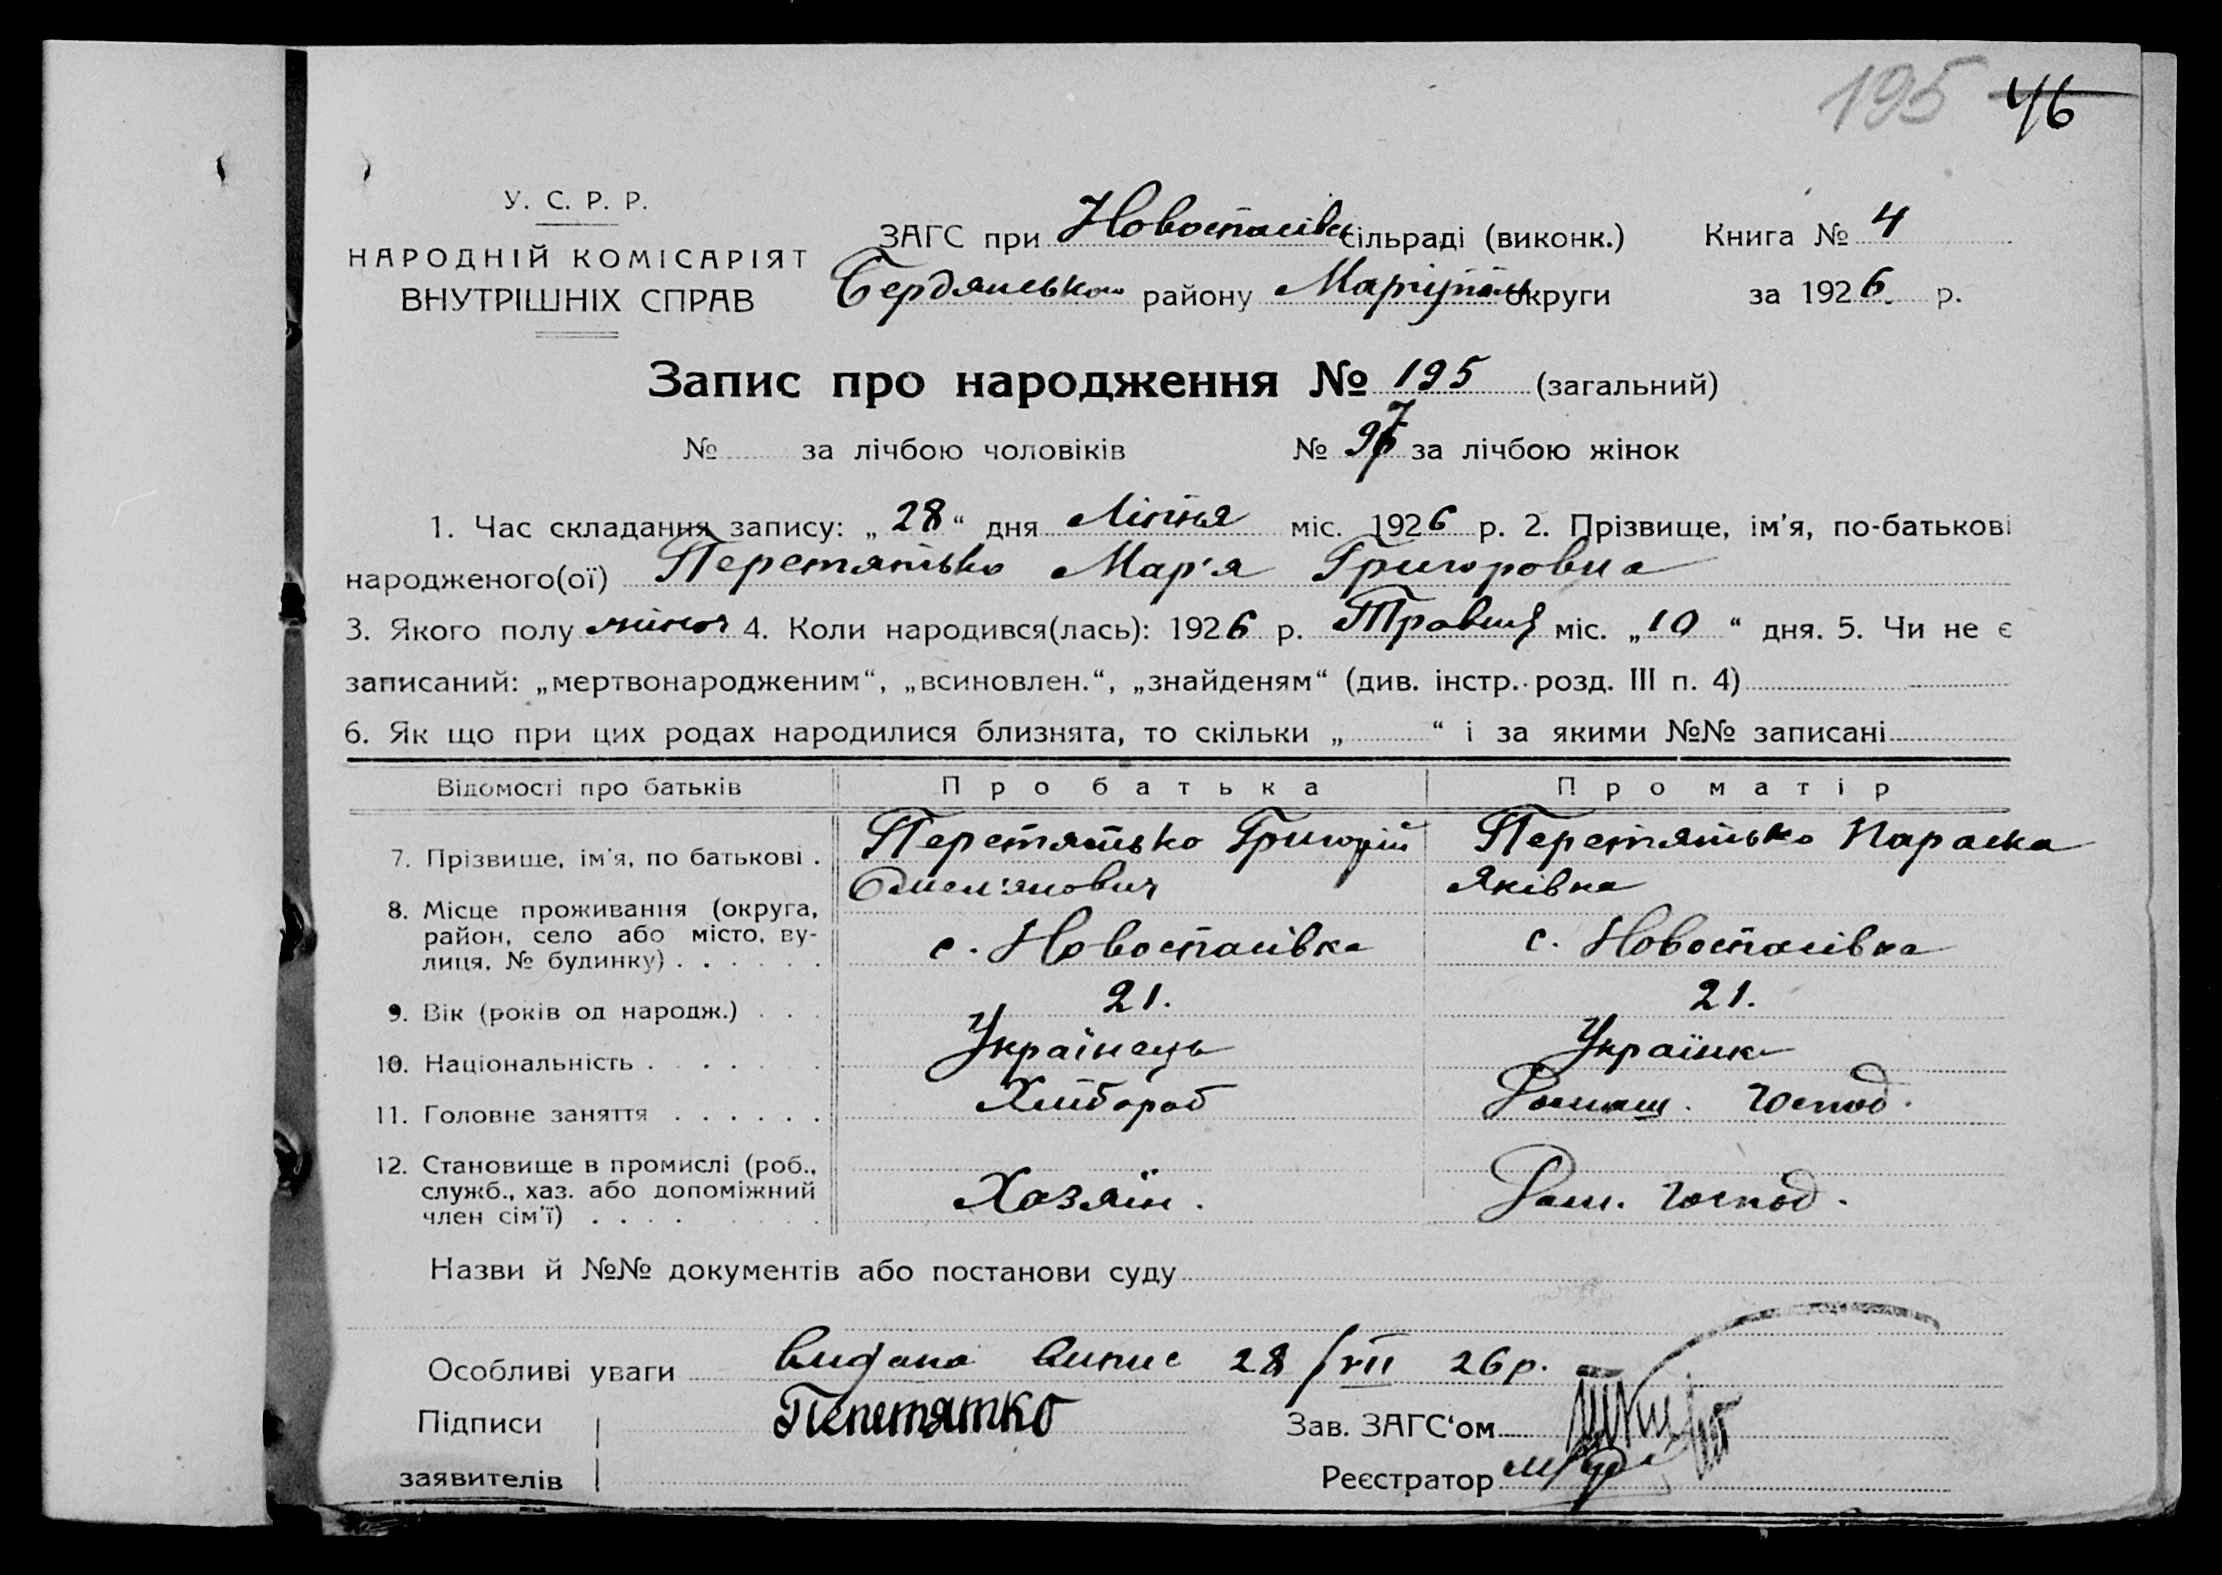 195 46
У. С. Р. Р.
НАРОДНІЙ КОМІСАРІЯТ
ВНУТРІШНІХ СПРАВ
ЗАГС при Новоспасівск сільраді (виконк.) Книга № 4
Бердянського району Маріупіль округи за 1926 р.
Запис про народження № 195 (загальний)
№ за лічбою чоловіків № 97 за лічбою жінок
1. Час складання запису: „28“ дня Липня міс. 1926 р. 2. Прізвище, ім'я, по-батькові
народженого(ої) Перетятько Мар'я Григоровна
3. Якого полу жіноч 4. Коли народився(лась): 1926 р. Травня міс. „10“ дня. 5. Чи не є
записаний: „мертвонародженим“, „всиновлен.“, „знайденям“ (див. інстр. розд. III п. 4)
6. Як що при цих родах народилися близнята, то скільки „ “ і за якими №№ записані
Відомості про батьків Про батька Про матір
7. Прізвище, ім'я, по батькові . Перетятько Григорій Перетятько Параска
Омел'янович Яківна
8. Місце проживання (округа,
район, село або місто, ву-
лиця, № будинку) . . . . . . с. Новоспасівка с. Новоспасівка
9. Вік (років од народж.) . . . 21. 21.
10. Національність . . . . . . Українець Українка
11. Головне заняття . . . . . . Хлібороб Домаш. господ.
12. Становище в промислі (роб.,
служб., хаз. або допоміжний
член сім'ї) . . . . Хазяїн. Дом. господ.
Назви й №№ документів або постанови суду
Особливі уваги видана випис 28/VII 26 р.
Підписи Пепетятко Зав. ЗАГС'ом
заявителів Реєстратор